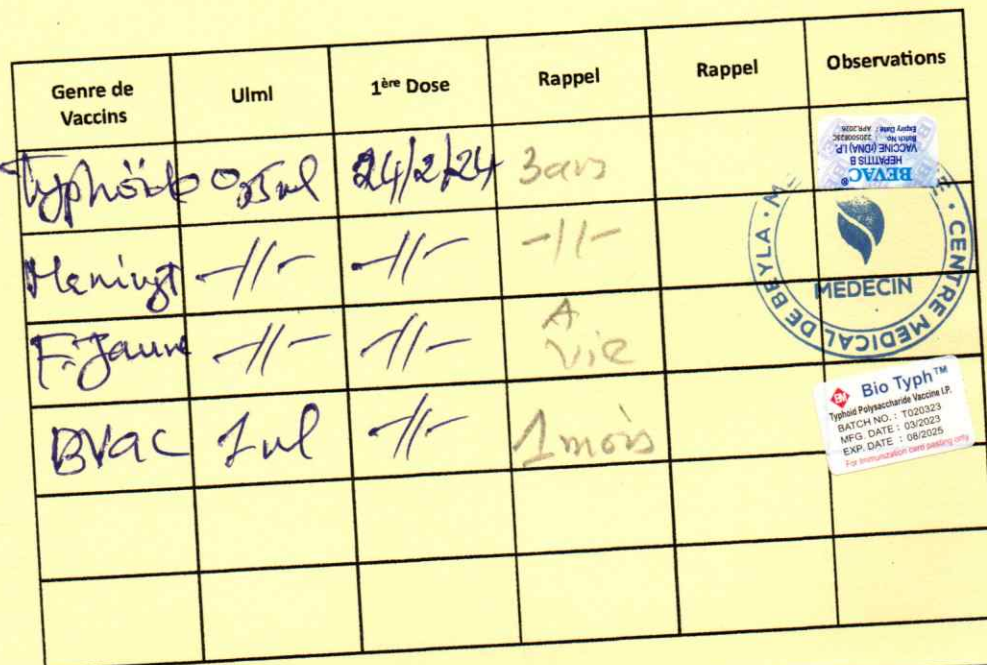 Genre de Vaccins UIml 1ère Dose Rappel Rappel Observations
Typhöide 0,5ml 24/2/24 3ans
BEVAC®
HEPATITIS B
VACCINE (rDNA) I.P.
Batch No. 220500823C
Expiry Date / APR.2026
Meningt -//- -//- -//-
CENTRE MEDICAL DE BEYLA
MEDECIN
F. Jaune -//- -//- A Vie
BVac 1ml -//- 1 mois
Bio Typh™
Typhoid Polysaccharide Vaccine I.P.
BATCH NO. : T020323
MFG. DATE : 03/2023
EXP. DATE : 08/2025
For immunization card pasting only